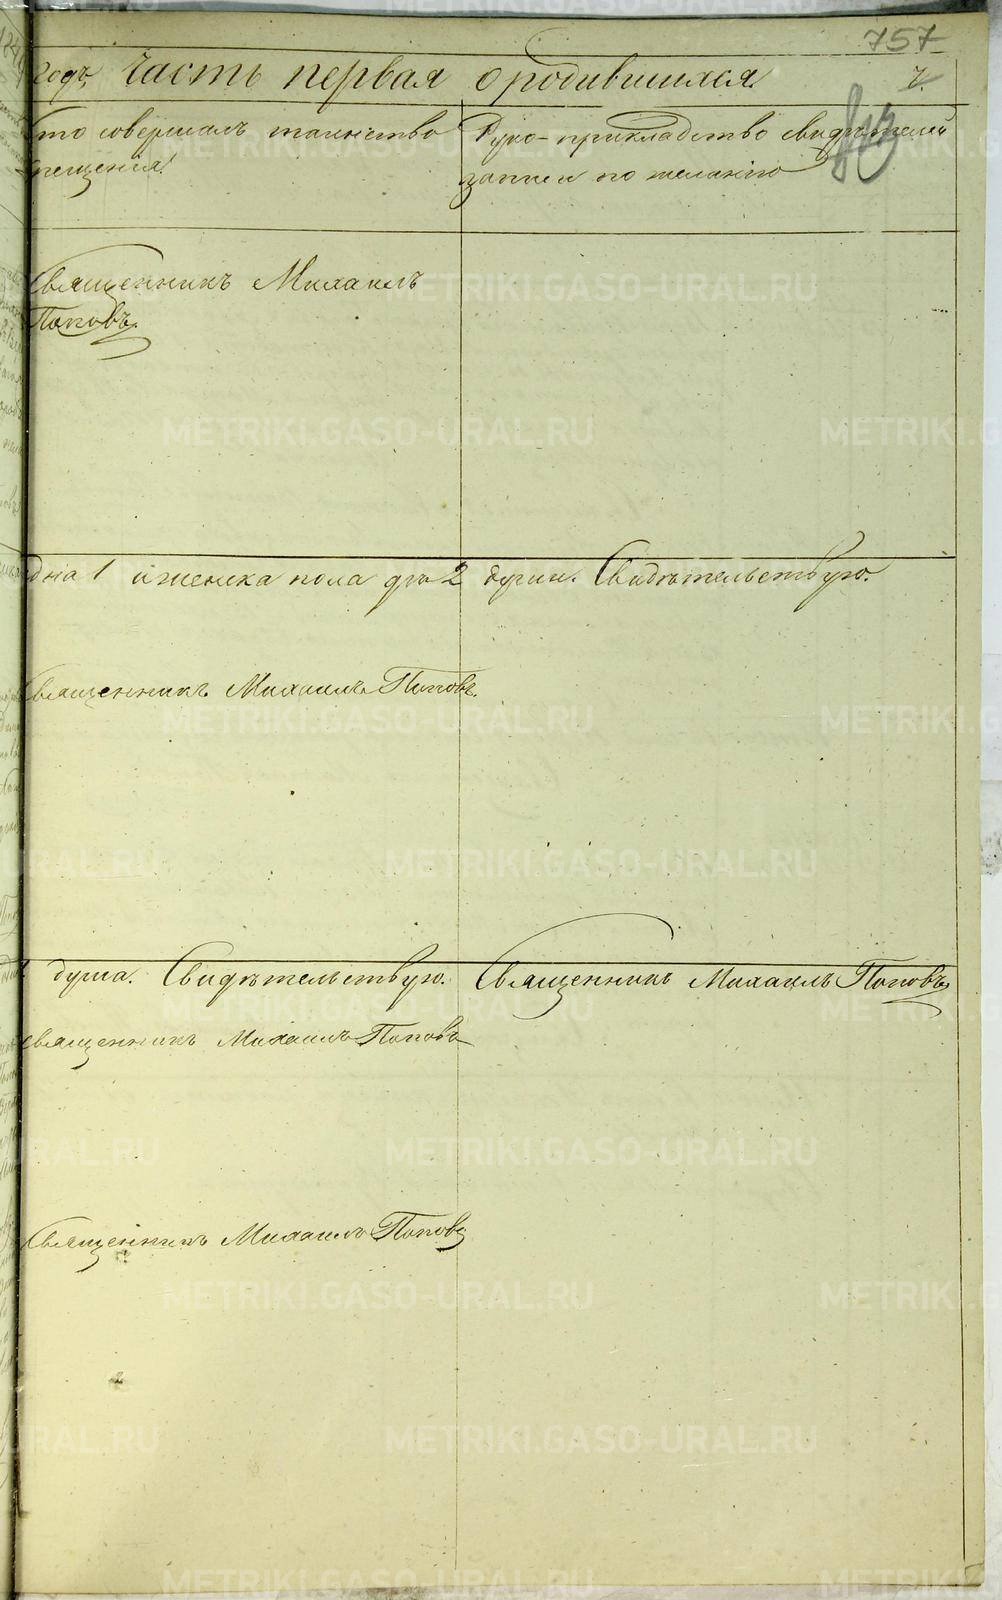 757
годъ, Часть первая о родившихся. 7.
Кто совершалъ таинство
крещенія.
Руко-прикладство свидѣтелей
записи по желанію
Священникъ Михаилъ
Поповъ.
одна 1 и женска пола два 2 души. Свидѣтельствую.
Священникъ Михаилъ Поповъ.
душа. Свидѣтельствую. Священникъ Михаилъ Поповъ
Священникъ Михаилъ Поповъ
Священникъ Михаилъ Поповъ
METRIKI.GASO-URAL.RU